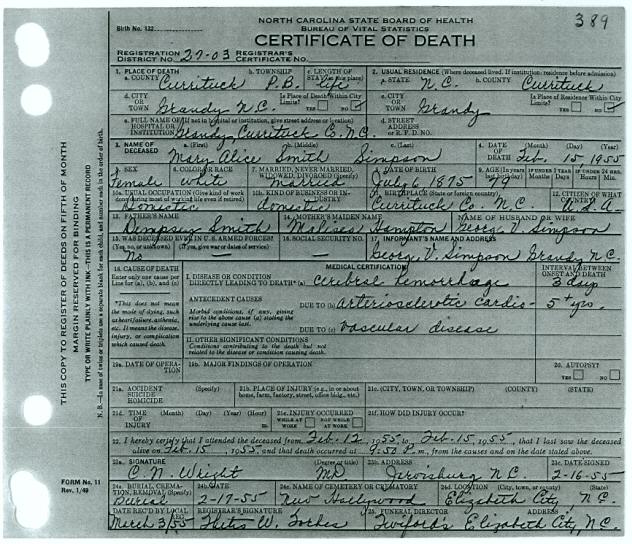 389
NORTH CAROLINA STATE BOARD OF HEALTH
Birth No. 132
BUREAU OF VITAL STATISTICS
CERTIFICATE OF DEATH
REGISTRATION DISTRICT NO. 27-03 REGISTRAR'S CERTIFICATE No.
1. PLACE OF DEATH 2. USUAL RESIDENCE (Where deceased lived. If institution: residence before admission)
a. COUNTY Currituck b. TOWNSHIP P.B. c. LENGTH OF STAY (at this place) life a. STATE N.C. b. COUNTY Currituck
d. CITY OR TOWN Grandy N.C. Is Place of Death Within City Limits? YES NO c. CITY OR TOWN Grandy Is Place of Residence Within City Limits? YES NO
e. FULL NAME OF (If not in hospital or institution, give street address or location) HOSPITAL OR INSTITUTION Grandy, Currituck Co. N.C. d. STREET ADDRESS or R. F. D. NO.
3. NAME OF DECEASED a. (First) b. (Middle) c. (Last) 4. DATE OF DEATH (Month) (Day) (Year)
Mary Alice Smith Simpson Feb. 15, 1955
5. SEX 6. COLOR OR RACE 7. MARRIED, NEVER MARRIED, WIDOWED, DIVORCED (Specify) 8. DATE OF BIRTH 9. AGE (In years IF UNDER 1 YEAR Months Days IF UNDER 24 HRS. Hours Min.
Female White Married July 6, 1875 79
10a. USUAL OCCUPATION (Give kind of work done during most of working life, even if retired) 10b. KIND OF BUSINESS OR INDUSTRY 11. BIRTHPLACE (State or foreign country) 12. CITIZEN OF WHAT COUNTRY?
Domestic domestic Currituck Co. N.C. U.S.A.
13. FATHER'S NAME 14. MOTHER'S MAIDEN NAME NAME OF HUSBAND OR WIFE
Dempsey Smith Malissa Hampton Georg. V. Simpson
15. WAS DECEASED EVER IN U.S. ARMED FORCES? 16. SOCIAL SECURITY NO. 17. INFORMANT'S NAME AND ADDRESS
(Yes, no, or unknown) (If yes, give war or dates of service)
No — Georg. V. Simpson Grandy N.C.
18. CAUSE OF DEATH MEDICAL CERTIFICATION INTERVAL BETWEEN ONSET AND DEATH
Enter only one cause per line for (a), (b), and (c) I. DISEASE OR CONDITION DIRECTLY LEADING TO DEATH* (a) Cerebral hemorrhage 3 days
*This does not mean the mode of dying, such as heart failure, asthenia, etc. It means the disease, injury, or complication which caused death.
ANTECEDENT CAUSES DUE TO (b) arteriosclerotic cardio- 5+ yrs
Morbid conditions, if any, giving rise to the above cause (a) stating the underlying cause last.
DUE TO (c) vascular disease
II. OTHER SIGNIFICANT CONDITIONS
Conditions contributing to the death but not related to the disease or condition causing death.
19a. DATE OF OPERATION 19b. MAJOR FINDINGS OF OPERATION 20. AUTOPSY? YES NO
21a. ACCIDENT SUICIDE HOMICIDE (Specify) 21b. PLACE OF INJURY (e.g., in or about home, farm, factory, street, office bldg., etc.) 21c. (CITY, TOWN, OR TOWNSHIP) (COUNTY) (STATE)
21d. TIME OF INJURY (Month) (Day) (Year) (Hour) m. 21e. INJURY OCCURRED WHILE AT WORK NOT WHILE AT WORK 21f. HOW DID INJURY OCCUR?
22. I hereby certify that I attended the deceased from Feb. 12, 1955, to Feb. 15, 1955, that I last saw the deceased
alive on Feb. 15, 1955 and that death occurred at 9:50 P. m., from the causes and on the date stated above.
23a. SIGNATURE (Degree or title) 23b. ADDRESS 23c. DATE SIGNED
C. N. Wright MD Jarvisburg N.C. 2-16-55
24a. BURIAL, CREMATION, REMOVAL (Specify) 24b. DATE 24c. NAME OF CEMETERY OR CREMATORY 24d. LOCATION (City, town, or county) (State)
Burial 2-17-55 New Hollywood Elizabeth City, N.C.
DATE REC'D BY LOCAL REG. REGISTRAR'S SIGNATURE 25. FUNERAL DIRECTOR ADDRESS
March 3/55 Thetis W. Forbes Twiford's Elizabeth City, N.C.
THIS COPY TO REGISTER OF DEEDS ON FIFTH OF MONTH
MARGIN RESERVED FOR BINDING
TYPE OR WRITE PLAINLY WITH INK—THIS IS A PERMANENT RECORD
N. B.—In case of twins or triplets use a separate blank for each child, and number each in the order of birth.
FORM No. 11
Rev. 1/49